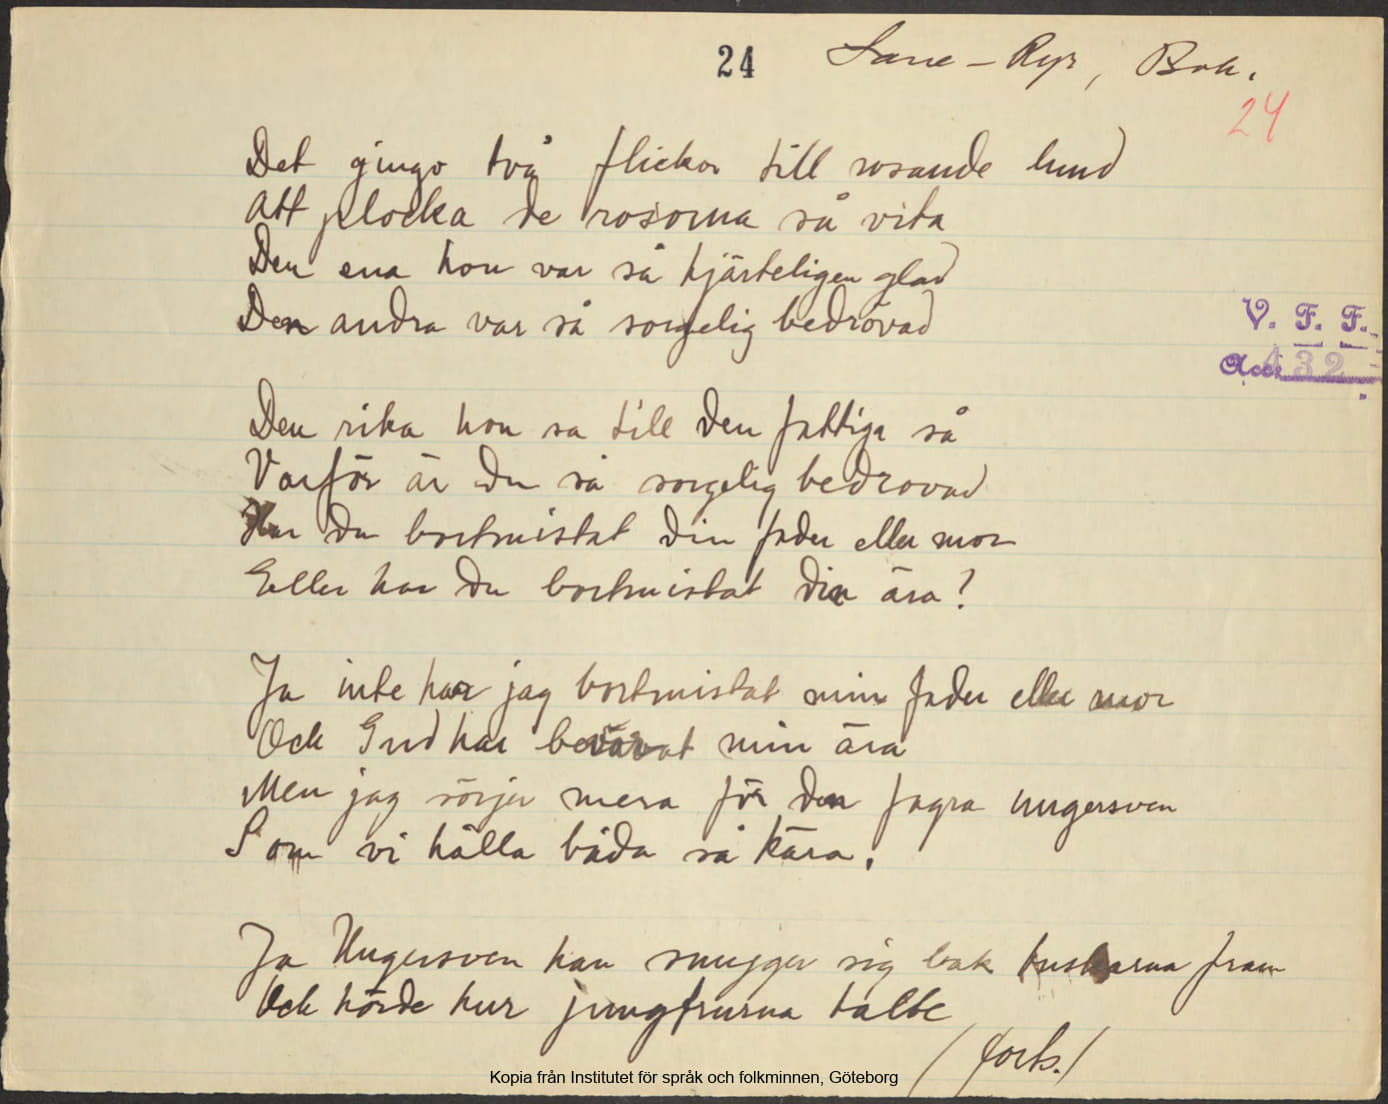 24 Lane-Ryr, Boh.
24
Det gingo två flickor till rosande lund
Att plocka de rosorna så vita
Den ena hon var så hjärteligen glad
Den andra var så sorgelig bedrövad
V. F. F.
Acc. 432
Den rika hon sa till den fattiga så
Varför är du så sorgelig bedrovad
Har du bortmistat din fader eller mor
Eller har du bortmistat din ära?
Ja inte har jag bortmistat min fader eller mor
Och Gud har bevarat min ära
Men jag sörjer mera för den fagra ungersven
Som vi hålla båda så kära.
Ja Ungersven han smygger sig bak buskarna fram
Och hörde hur jungfrurna talte
(forts.)
Kopia från Institutet för språk och folkminnen, Göteborg